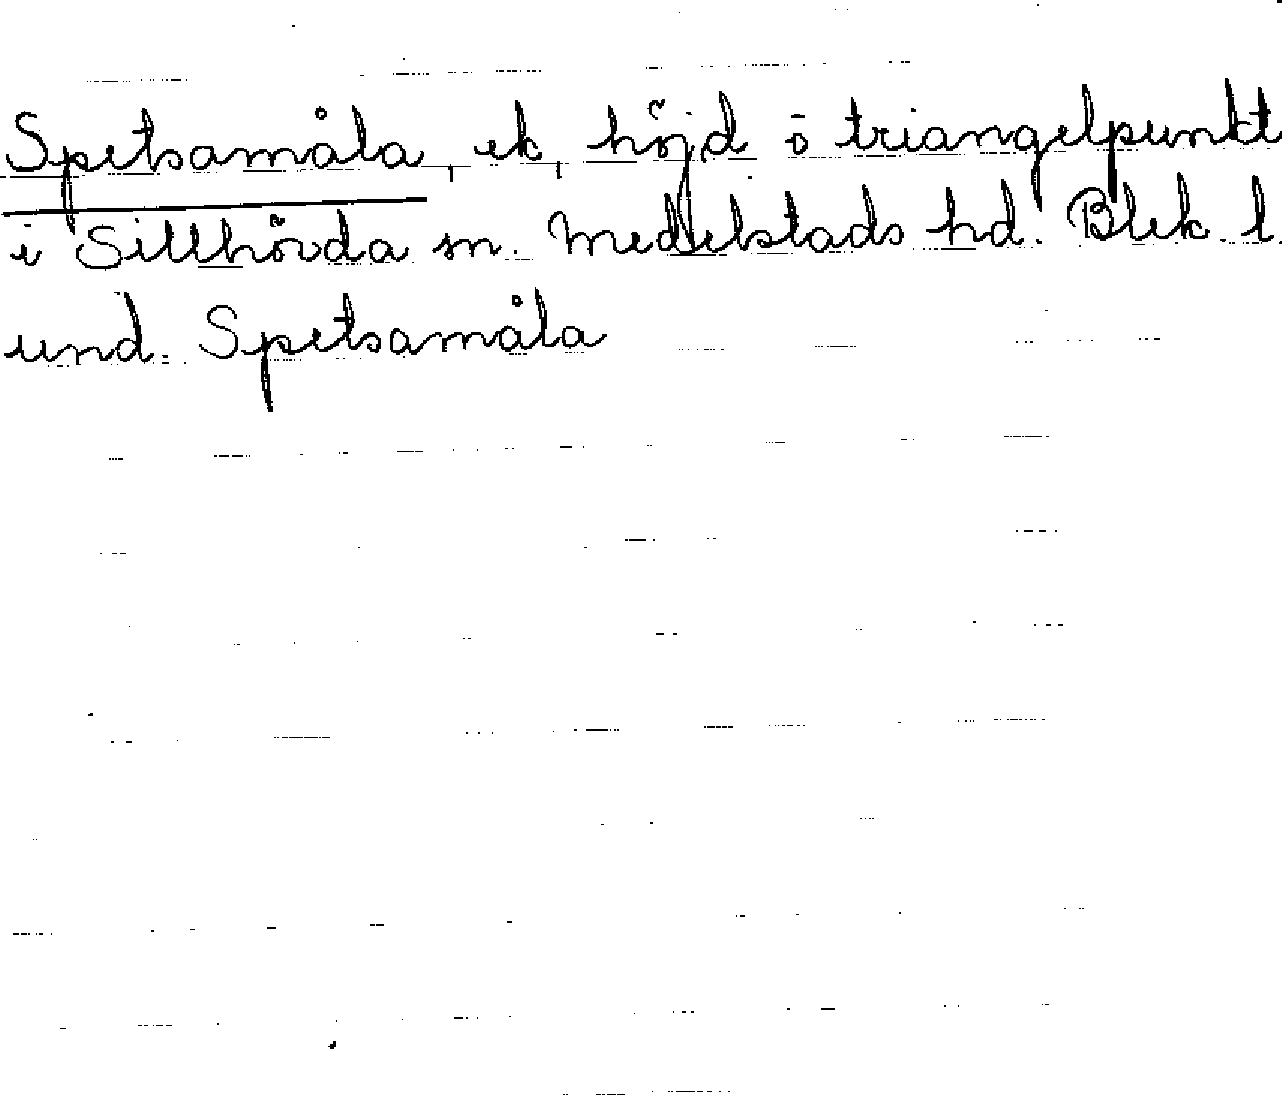 Spetsamåla, ek, höjd ö triangelpunkt
i Sillhövda sn. Medelstads hd. Blek. l.
und. Spetsamåla